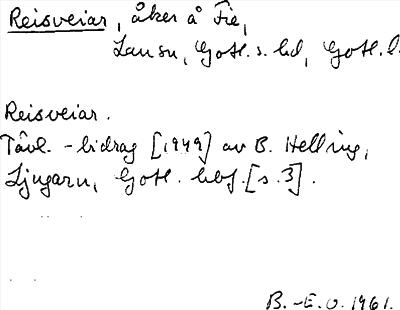 Reisveiar, åker å Fie,
Lausn, Gotl. s. hd, Gotl. l.
Reisveiar.
Tävl. -bidrag [1949] av B. Helling,
Ljugarn, Gotl. hbf [s. 3].
B.-E. O. 1961.